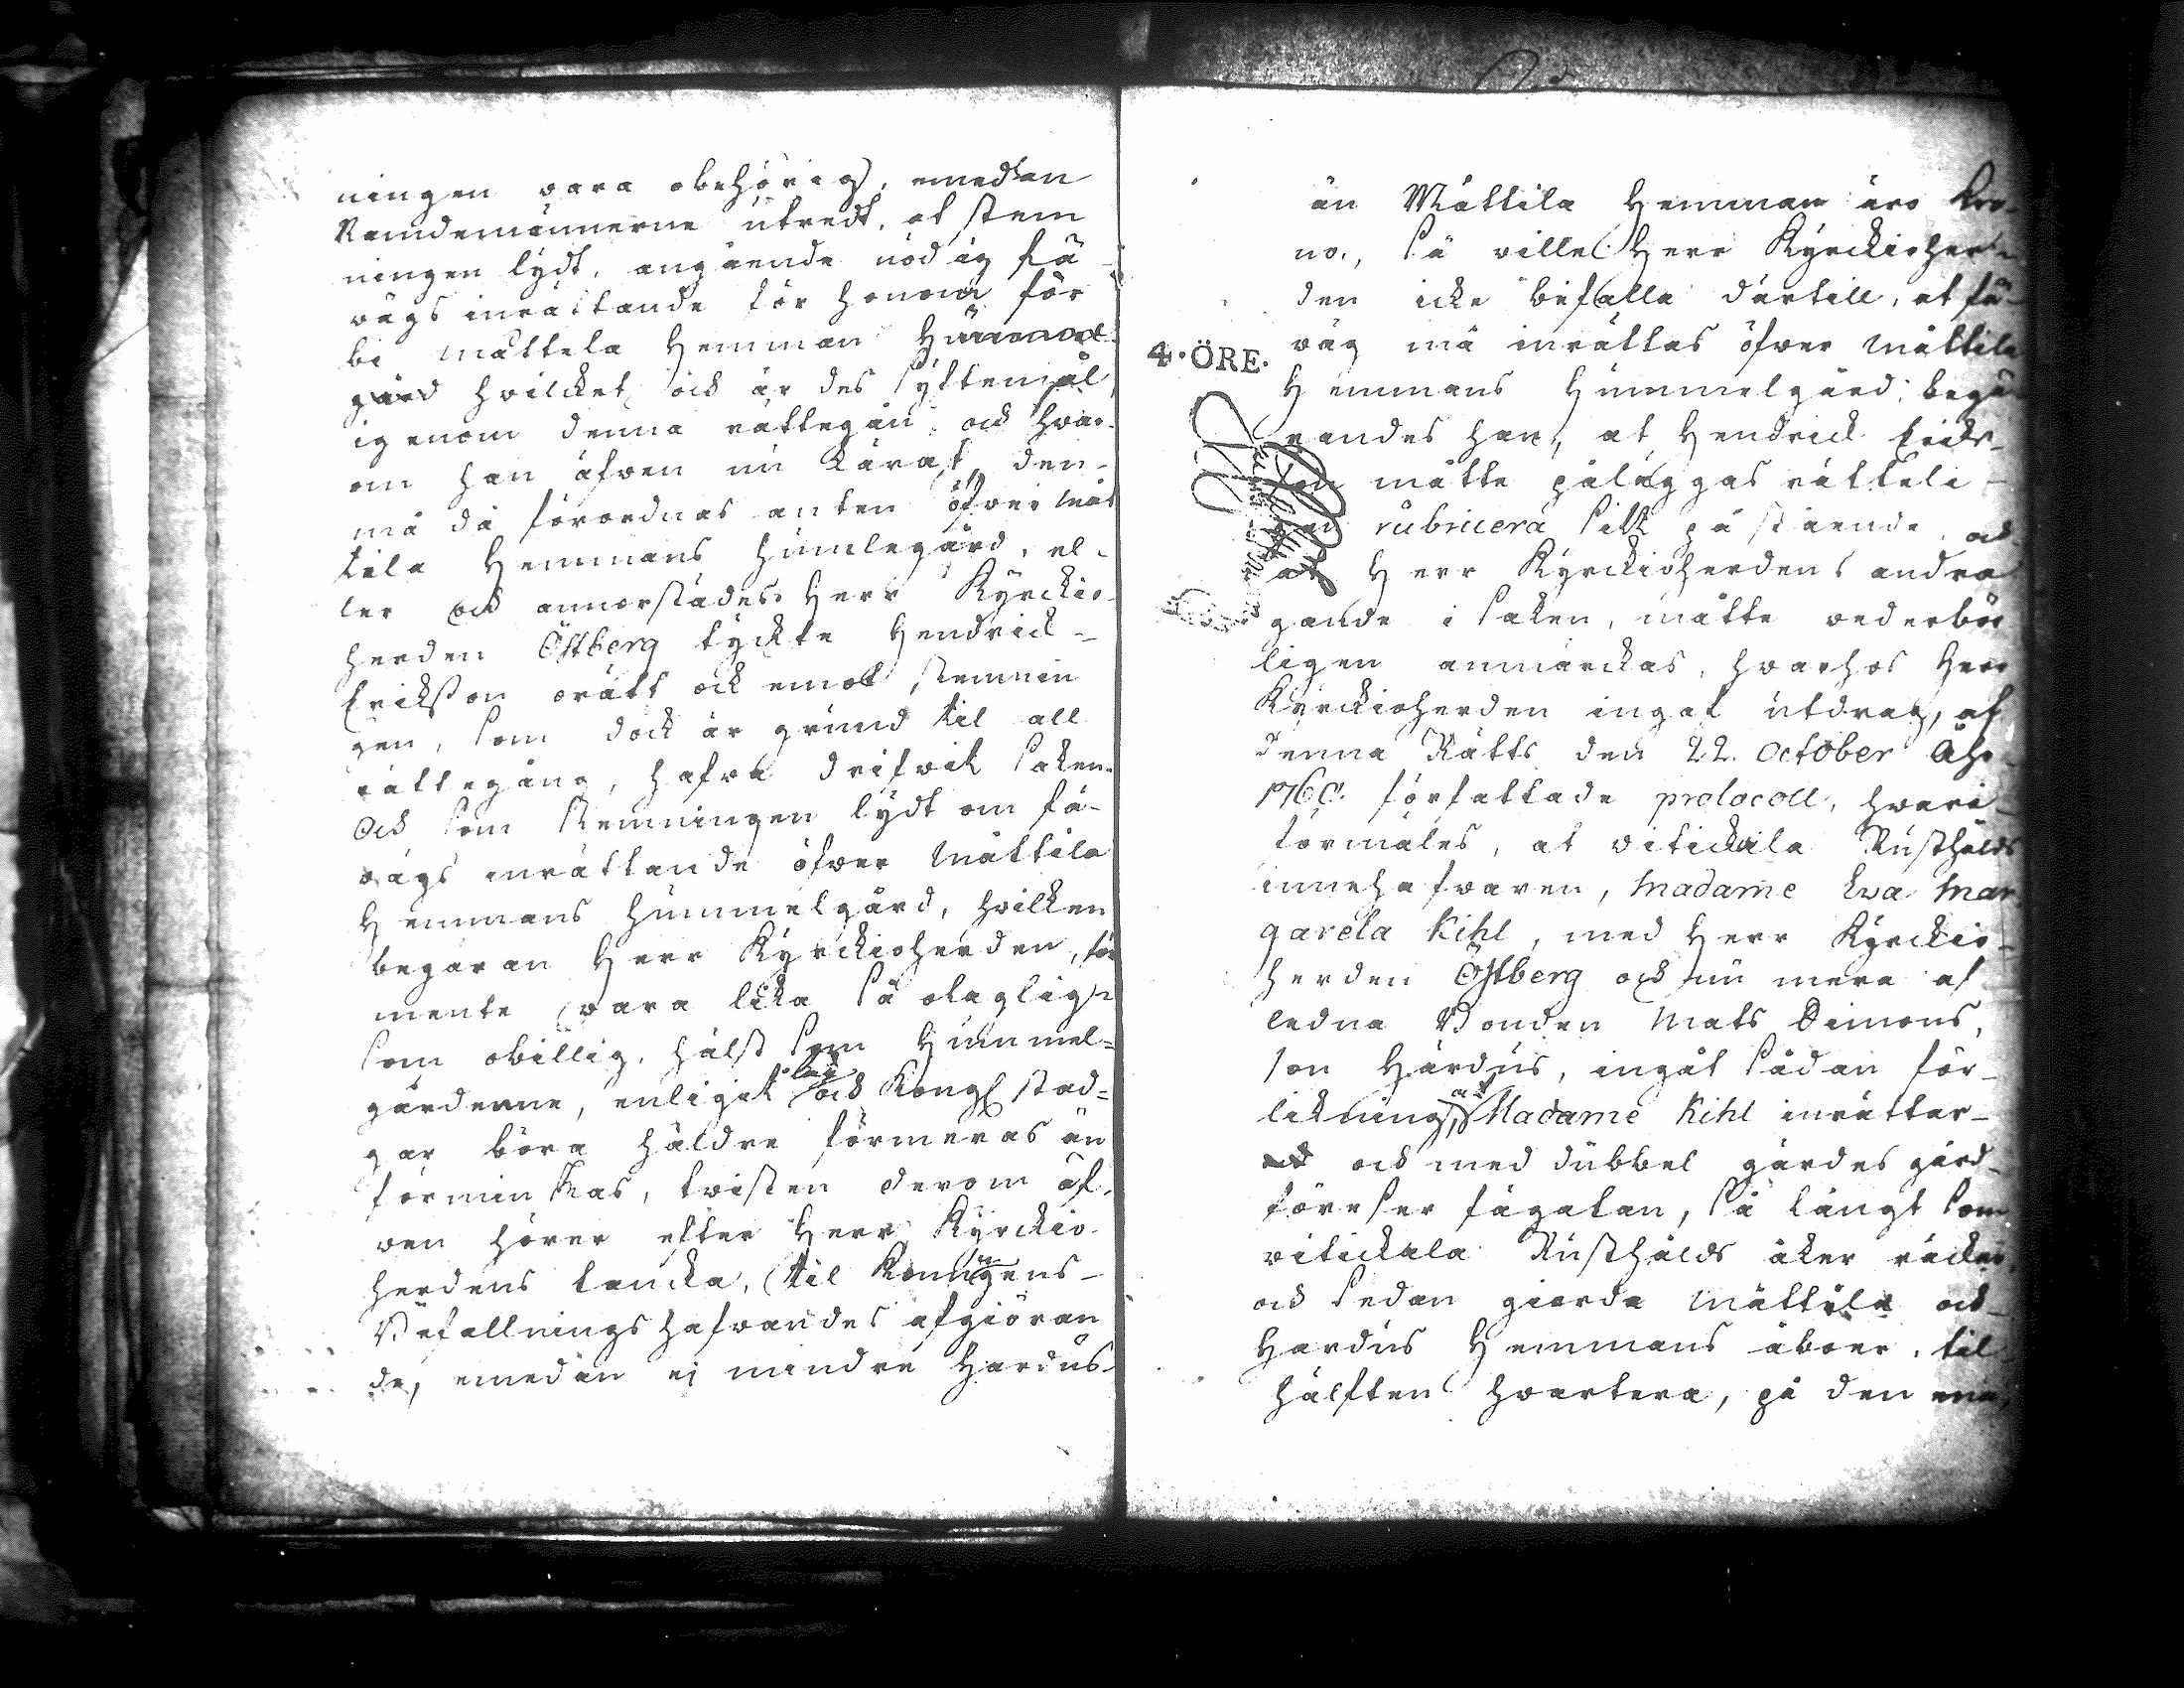 ningen vara obehörig, emedan
Nämdemännerne utredt, at stem
ningen lydt, angående nödig fä-
vägs inrättande för honom för
bi Mattela Hemman Hummel
gård hvilcket ock är des syftemål
igenom denna rättegån; ock hvar-
om han äfven nu kärat, den-
må då förordnas anten öfver Mat
tila Hemmans humlegård, el-
ler ock annorstädes: Herr Kyrckio-
herden Östberg tyckte Hendrick-
Erikßon orätt ock emot stemnin
gen, som dock är grund til all
rättegång, hafva drifvit saken.
Ock som stemningen lydt om fä-
vägs inrättande öfver Mattila
Hemmans hummelgård, hvilken
begäran Herr Kyrckioherden, för
mente vara lika så olaglig
som obillig, hälst som Hummel-
gårderne, enligit lag ock Kongl stad-
gar böra häldre förmeras än
förminskas, tvisten derom äf-
ven hörer efter Herr Kyrckio
herdens tancka, til Konungens-
Befallningshafvandes afgiöran
de, emedan ej mindre Hardus-
än Mattila Hemman äro Kro-
no, så ville Herr Kyrckioher-
den icke bifalla dertill, at fä-
väg må inrättas öfver Mattila
4. ÖRE.
Hemmans Hummelgård; begä-
randes han, at Hendrick Erick-
son måtte påläggas rätteli-
gen rubricera sitt påstående, ock
at Herr Kyrckioherdens andra
gande i saken, måtte vederbör
ligen anmärckas, hvarhos Herr
Kyrckioherden ingaf utdrag, af
denna Rätts den 22. October Åhr
1760. författade protocoll, hvari-
förmäles, at vitickala Rusthålds
innehafvaren, Madame Eva Mar
gareta Kihl, med Herr Kyrckio-
herden Östberg ock nu mera af
ledna Bonden Mats Simons-
son Hardus, ingåt sådan för-
likning, at Madame Kihl inrättar-
ock med dubbel gärdes gård-
föreser fägatan, så långt som
vitickala Rusthålds åker räcker,
ock sedan giärda Mattila ock-
Hardus Hemmans åboer, til
hälften hvartera, på den ena,